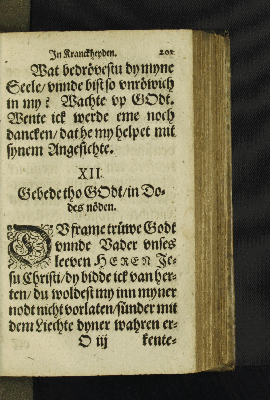 In Kranckheyden. 201
Wat bedrövestu dy myne
Seele/ vnnde bist so vnröwich
in my? Wachte vp GOdt.
Wente ick werde eme noch
dancken/ dat he my helpet mit
synem Angesichte.
XII.
Gebede tho GOdt/ in Do-
des nöden.
DV frame trüwe Godt
vnnde Vader vnses
leeven HEREN Je-
su Christi/ dy bidde ick van her-
ten/ du woldest my inn myner
nodt nicht vorlaten/ sünder mit
dem Liechte dyner wahren er-
O iij kente-